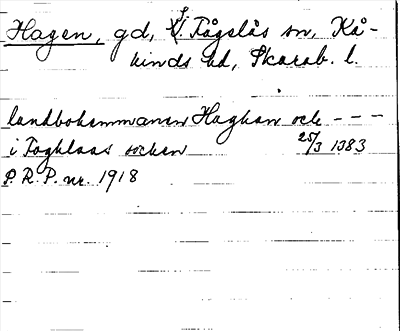 Hagen, gd, V. Fågelås sn, Kå-
kinds hd, Skarab. l.
landbohemmanen Haghan och - - -
i Foghlaas socken 25/3 1383
P.R.P. nr. 1918